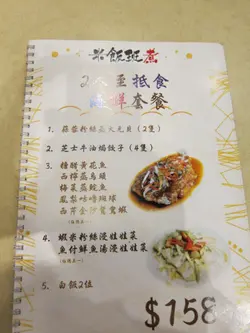 米飯班煮
2人至抵食
海鮮套餐
1. 蒜蓉粉絲蒸大元貝（2隻）
2. 芝士牛油焗蠔子（4隻）
3. 糖醋黃花魚
西檸蒸烏頭
梅菜蒸鯇魚
鳳梨咕嚕蝦球
西芹金沙鴛鴦蝦
4. 蝦米粉絲浸娃娃菜
魚付鮮魚湯浸娃娃菜
5. 白飯2位
$158